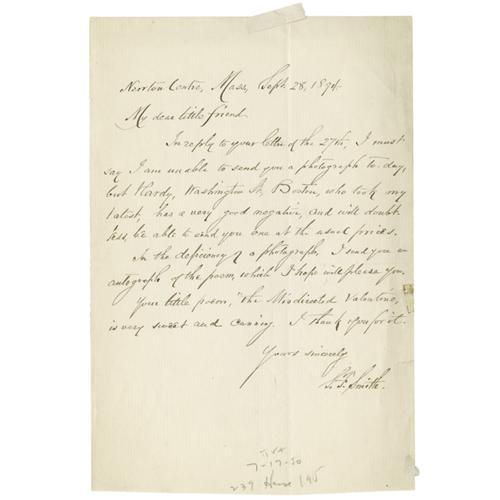 Newton Centre, Mass, Sept. 28, 1894.
My dear little friend
In reply to your letter of the 27th, I must
say I am unable to send you a photograph to-day,
but Hardy, Washington St, Boston, who took my
latest, has a very good negative, and will doubt
less be able to send you one at the usual prices.
In the deficiency of a photograph, I send you an
autograph of the poem, which I hope will please you.
Your little poem, "the Misdirected Valentine,
is very sweet and cunning. I thank you for it.
Yours sincerely
S. F. Smith.
7-17-50
239